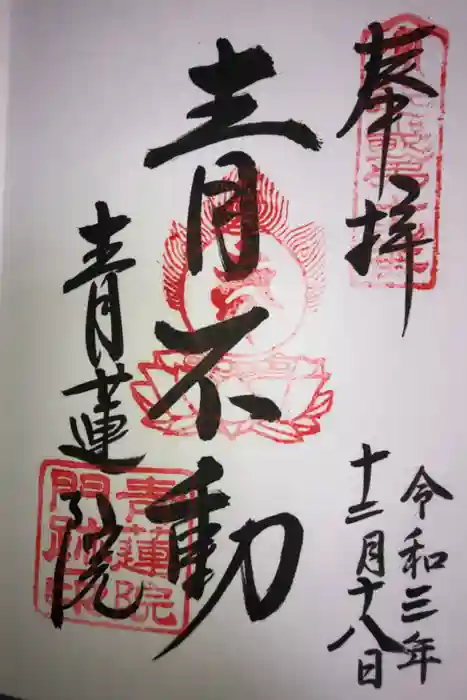 奉拝
令和三年
十二月十八日
青不動
青蓮院
青蓮院
門跡